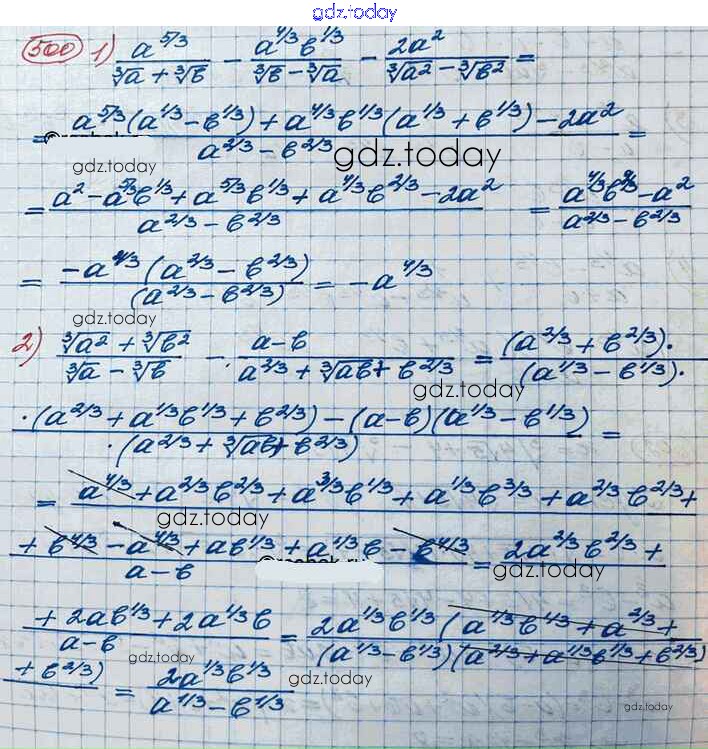 gdz.today
500 1) a^{5/3}/(∛a + ∛b) − a^{4/3}b^{1/3}/(∛b − ∛a) − 2a²/(∛a² − ∛b²) =
= (a^{5/3}(a^{1/3} − b^{1/3}) + a^{4/3}b^{1/3}(a^{1/3} + b^{1/3}) − 2a²)/(a^{2/3} − b^{2/3}) =
gdz.today
gdz.today
= (a² − a^{5/3}b^{1/3} + a^{5/3}b^{1/3} + a^{4/3}b^{2/3} − 2a²)/(a^{2/3} − b^{2/3}) = (a^{4/3}b^{2/3} − a²)/(a^{2/3} − b^{2/3})
= −a^{4/3}(a^{2/3} − b^{2/3})/(a^{2/3} − b^{2/3}) = −a^{4/3}
gdz.today
2) (∛a² + ∛b²)/(∛a − ∛b) − (a − b)/(a^{2/3} + ∛ab + b^{2/3}) = (a^{2/3} + b^{2/3})·/(a^{1/3} − b^{1/3})·
gdz.today
·(a^{2/3} + a^{1/3}b^{1/3} + b^{2/3}) − (a − b)(a^{1/3} − b^{1/3})/·(a^{2/3} + ∛ab + b^{2/3}) =
= a^{4/3} + a^{2/3}b^{2/3} + a^{3/3}b^{1/3} + a^{1/3}b^{3/3} + a^{2/3}b^{2/3} +
gdz.today
+ b^{4/3} − a^{4/3} + ab^{1/3} + a^{1/3}b − b^{4/3}/(a − b) = 2a^{2/3}b^{2/3} +
gdz.today
+ 2ab^{1/3} + 2a^{1/3}b/(a − b) = 2a^{1/3}b^{1/3}(a^{1/3}b^{1/3} + a^{2/3} +/(a^{1/3} − b^{1/3})(a^{2/3} + a^{1/3}b^{1/3} + b^{2/3})
gdz.today
+ b^{2/3}) = 2a^{1/3}b^{1/3}/(a^{1/3} − b^{1/3})
gdz.today
gdz.today